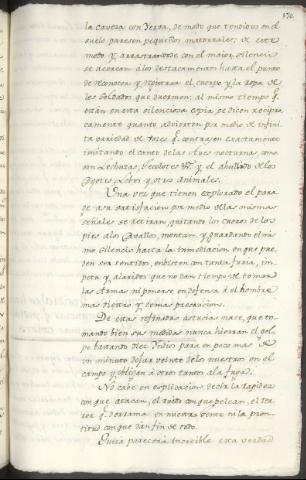 170.
la caveza con Yerva, de modo que tendidos en el
suelo parecen pequeños matorrales: de este
modo y arrastrandose con el maior silencio
se acercan a los destacamentos hasta el punto
de reconocer y registrar el cuerpo y la ropa de
los Soldados que duermen: al mismo tiempo q.
están en esta silenciosa espia, se dicen recipro
camente quanto advierten por medio de infini
ta variedad de toces q. contraen exactamente
imitando el canto de las Aves nocturnas, como
son Lechuzas, Tecolotes &.a y el ahullido de los
Coyotes, Lobos y otros Animales.
Una vez que tienen explorado el para
ge a su satisfaccion por medio de las mismas
señales se retiran, quitando los cueros de los
pies a los Cavallos, montan, y guardando el mis
mo silencio hasta la inmediacion en que pue
den ser sentidos, embisten con tanta furia, im
petu y alaridos que no dan tiempo de tomar
las Armas ni ponerse en defensa á el hombre
mas diestro y de mas precaucion.
De estas refinadas astucias nace, que to
mando bien sus medidas nunca hierran el gol
pe bastando diez Indios para en poco mas de
un minuto dejar veinte de los nuestros en el
campo y obliguen á otros tantos a la fuga.
No cabe en explicacion decir la rapidez
con que atacan, el ruido con que pelean, el ter
ror q. derrama en nuestra gente ni la pron
titud con que dan fin de todo.
Quiza parecerá increible esta verdad